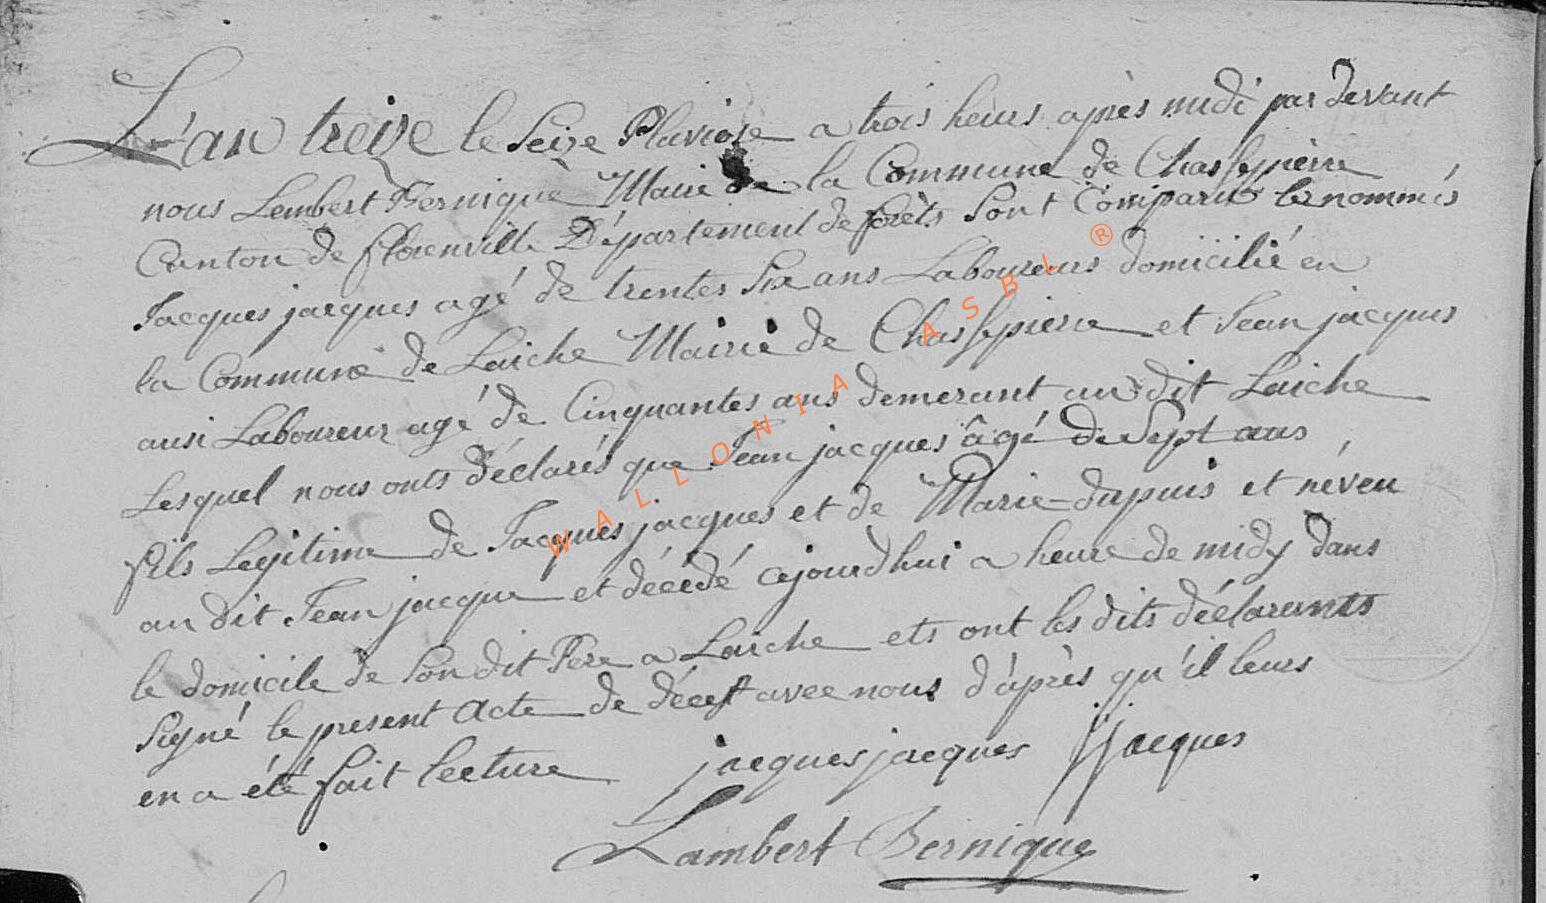 L'an treize le Seize Pluviose a trois heurs après midi par devant
nous Lembert Bernique Maire de la Commune de Chassepierre
Canton de florenville Département de forêts sont Comparu les nommés
Jacques jacques agé de trentes Six ans Laboureurs domicilié en
la Commune de Laiche Mairie de Chassepierre et Jean jacques
ausi Laboureur agé de Cinquantes ans demerant au dit Laiche
Lesquel nous onts déclarés que Jean jacques âgé de Sept ans
fils Legitime de Jacques jacques et de Marie dupuis et néveu
au dit Jean jacque et décédé cejourdhui a heure de midy dans
le domicile de Son dit Pere a Laiche ets ont les dits déclarants
Signé le present Acte de décest avec nous d'après qu'il leurs
en a été fait lecture jacques jacques JJacques
Lambert Bernique
WALLONIA ASBL ®